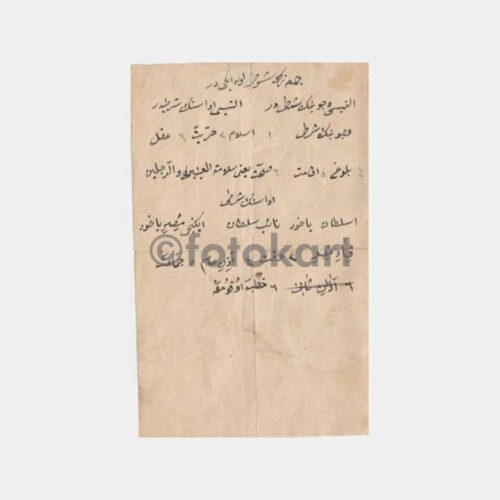 جمعه نك شروطی اون ایکی در
التیسی وجوبنك شرطی در التیسی اداسنك شرطیدر
وجوبنك شرطی ١ اسلام ٢ حریت ٣ عقل
٤ بلوغ ٥ اقامت ٦ صحت یعنی سلامة العینین والرجلین
اداسنك شرطی
١ سلطان یاخود نائب سلطان ایکنجی مصر یاخود
©fotokart
جماعت
٦ خطبه اوقومق